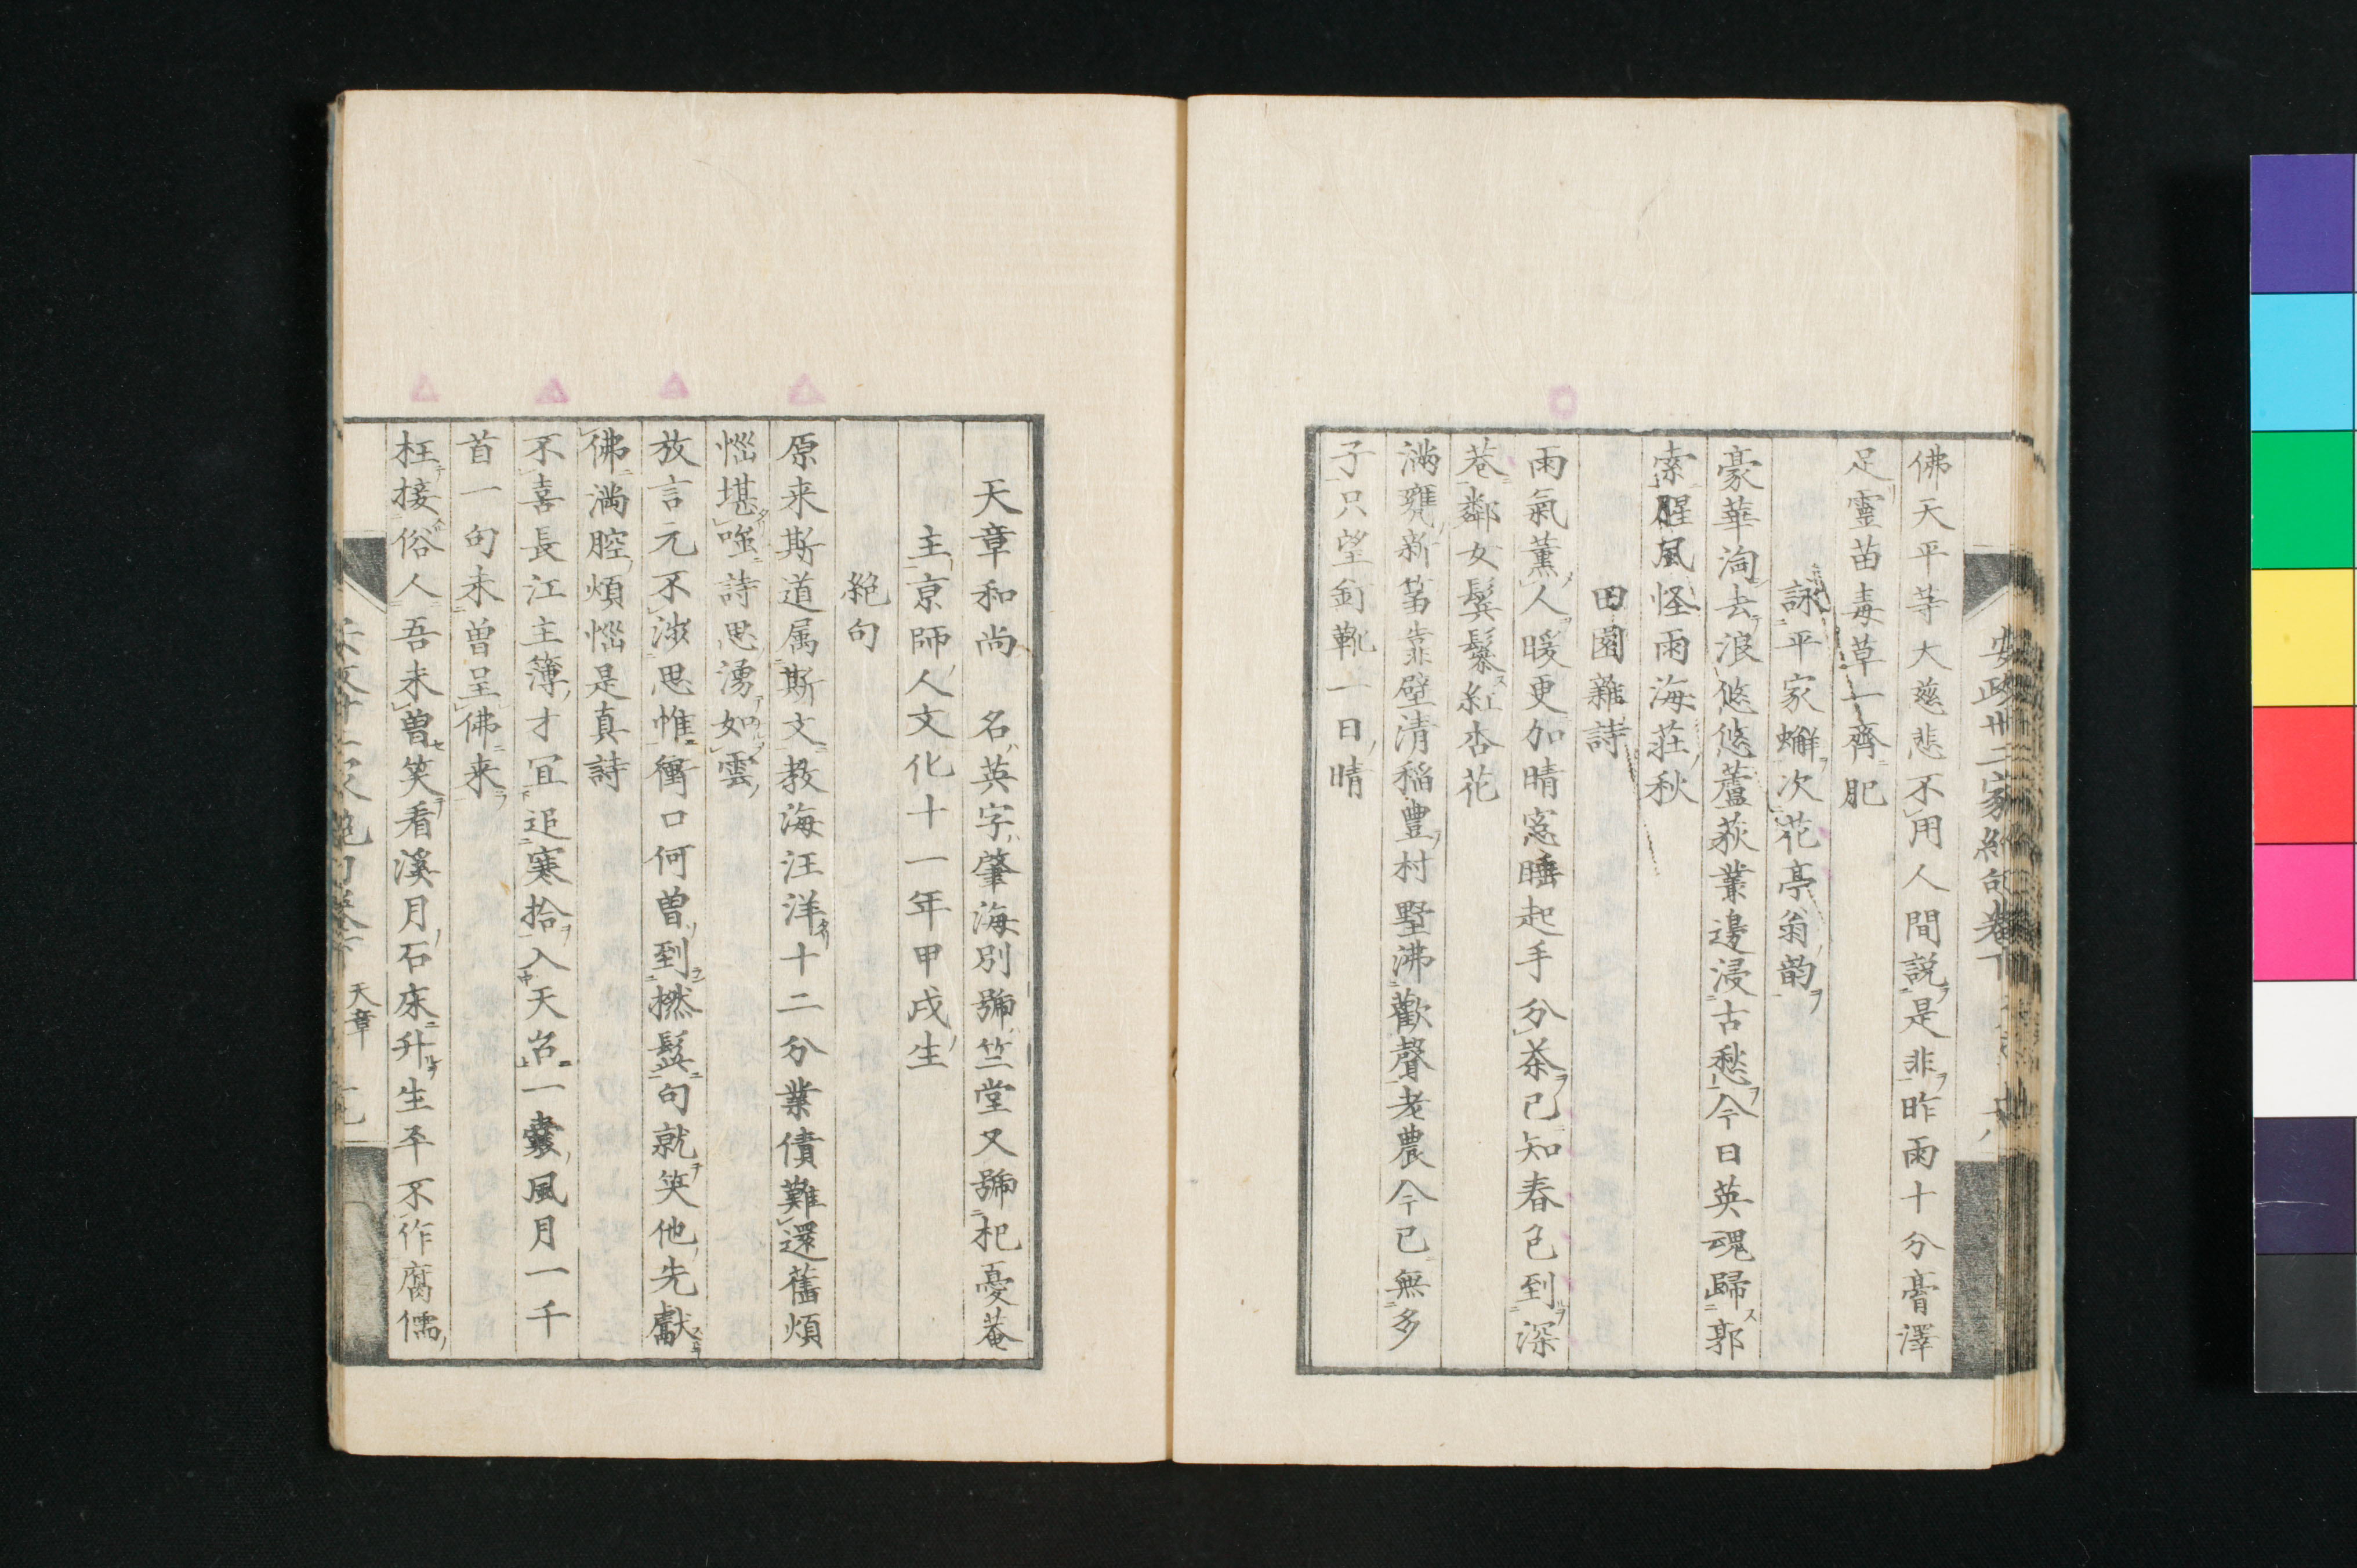 安政卅二家絶句卷下
佛天平等大慈悲不用人間説是非昨雨十分膏澤
足靈苗毒草一齊肥
詠平家蠏次花亭翁韵
豪華淘去浪悠悠蘆荻叢邊浸古愁今日英魂歸郭
索腥風怪雨海莊秋
田園雜詩
雨氣薫人暖更加晴窓睡起手分茶已知春色到深
巷鄰女鬂鬖紅杏花
滿甕新篘靠壁清稲豊村墅沸歡聲老農今已無多
子只望釘靴一日晴
天章和尚 名英字肇海別號竺堂又號杞憂菴
主京師人文化十一年甲戌生
絶句
原来斯道属斯文教海汪洋十二分業債難還舊煩
惱堪嗤詩思湧如雲
放言元不渋思惟衝口何曽到撚髭句就笑他先獻
佛満腔煩惱是真詩
不喜長江主簿才冝追寒拾入天台一囊風月一千
首一句未曽呈佛来
枉接俗人吾未曽笑看溪月石床升生平不作腐儒
天章